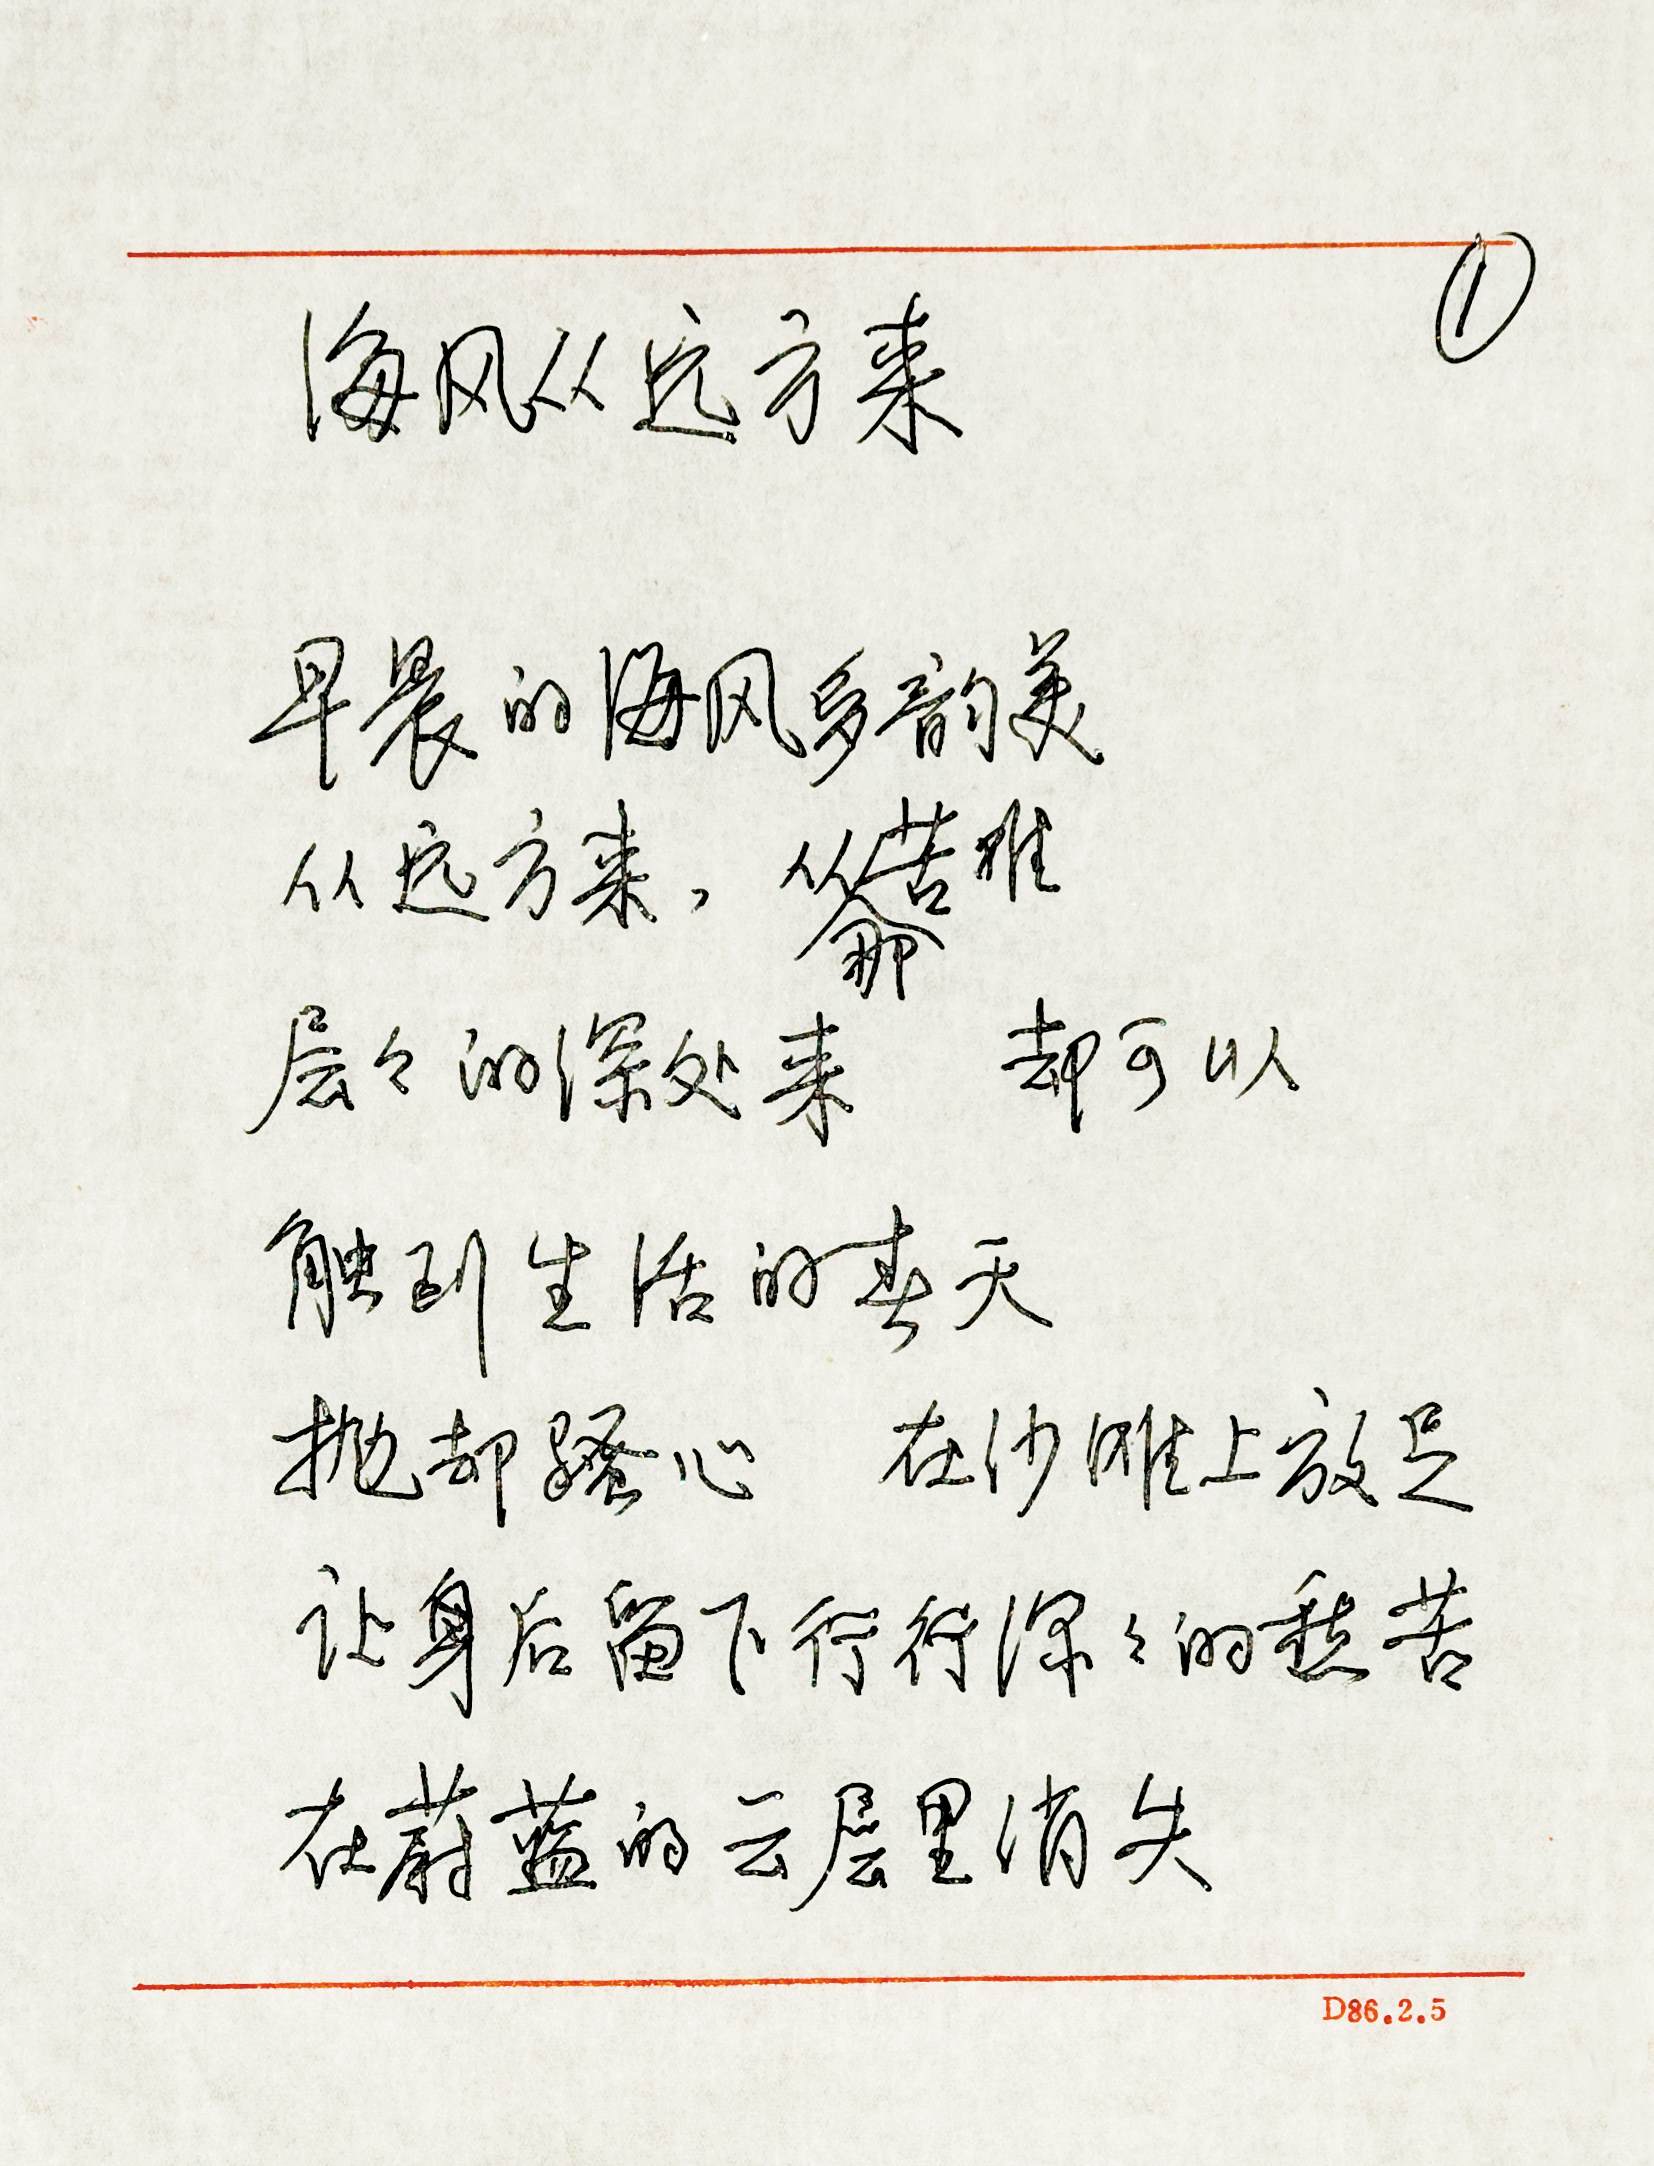 ①
海风从远方来
早晨的海风多韵美
从远方来，从那苦难
层々的深处来　却可以
触到生活的春天
抛却骚心　在沙滩上放足
让身后留下行行深々的愁苦
在蔚蓝的云层里消失
D86.2.5